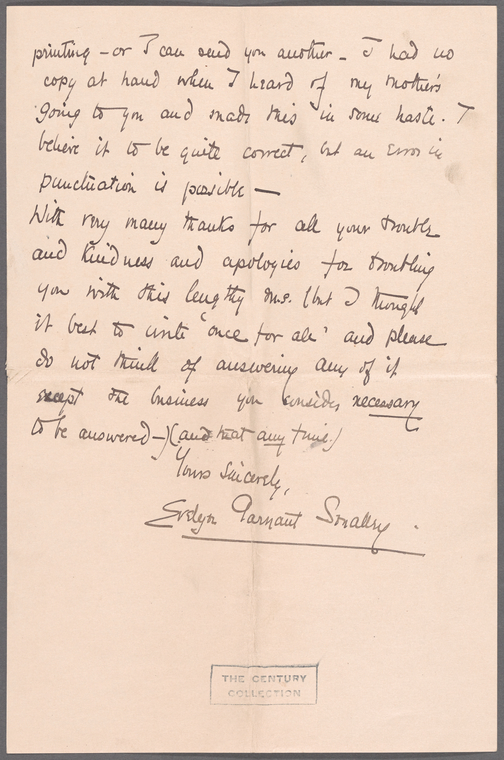 printing - or I can send you another - I had no
copy at hand when I heard of my mother's
going to you and made this in some haste. I
believe it to be quite correct, but an error in
punctuation is possible —
With very many thanks for all your trouble
and kindness and apologies for troubling
you with this lengthy ms. (but I thought
it best to write 'once for all' and please
do not think of answering any of it
except the business you consider necessary
to be answered -) (and that any time.)
Yours sincerely,
Evelyn Garnaut Smalley.
THE CENTURY
COLLECTION